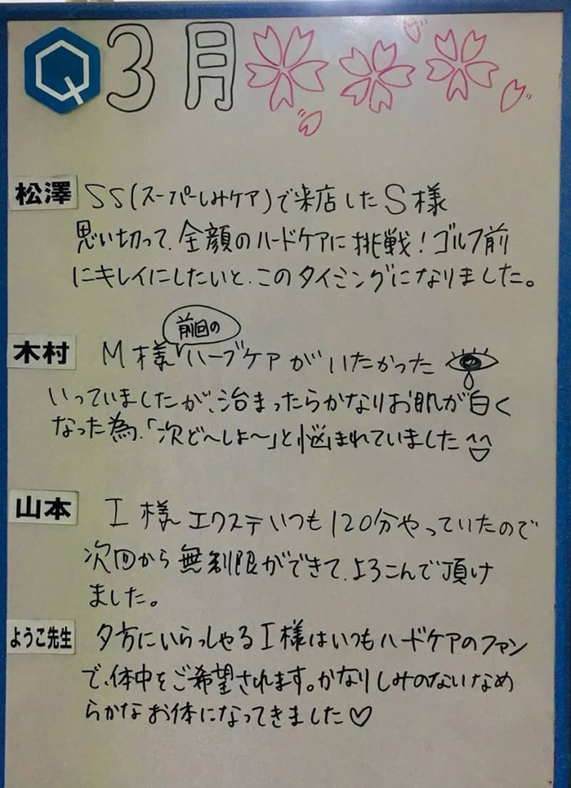 Q 3月
松澤 SS(スーパーしみケア)で来店したS様
思い切って、全顔のハードケアに挑戦!ゴルフ前
にキレイにしたいと、このタイミングになりました。
前回の
木村 M様 ハーブケアがいたかった
いっていましたが、治まったらかなりお肌が白く
なった為、「次ど〜しよ〜」と悩まれていました^^
山本 I様 エクステいつも120分やっていたので
次回から無制限ができて、よろこんで頂け
ました。
ようこ先生 夕方にいらっしゃるI様はいつもハードケアのファン
で、体中をご希望されます。かなりしみのないなめ
らかなお体になってきました♡